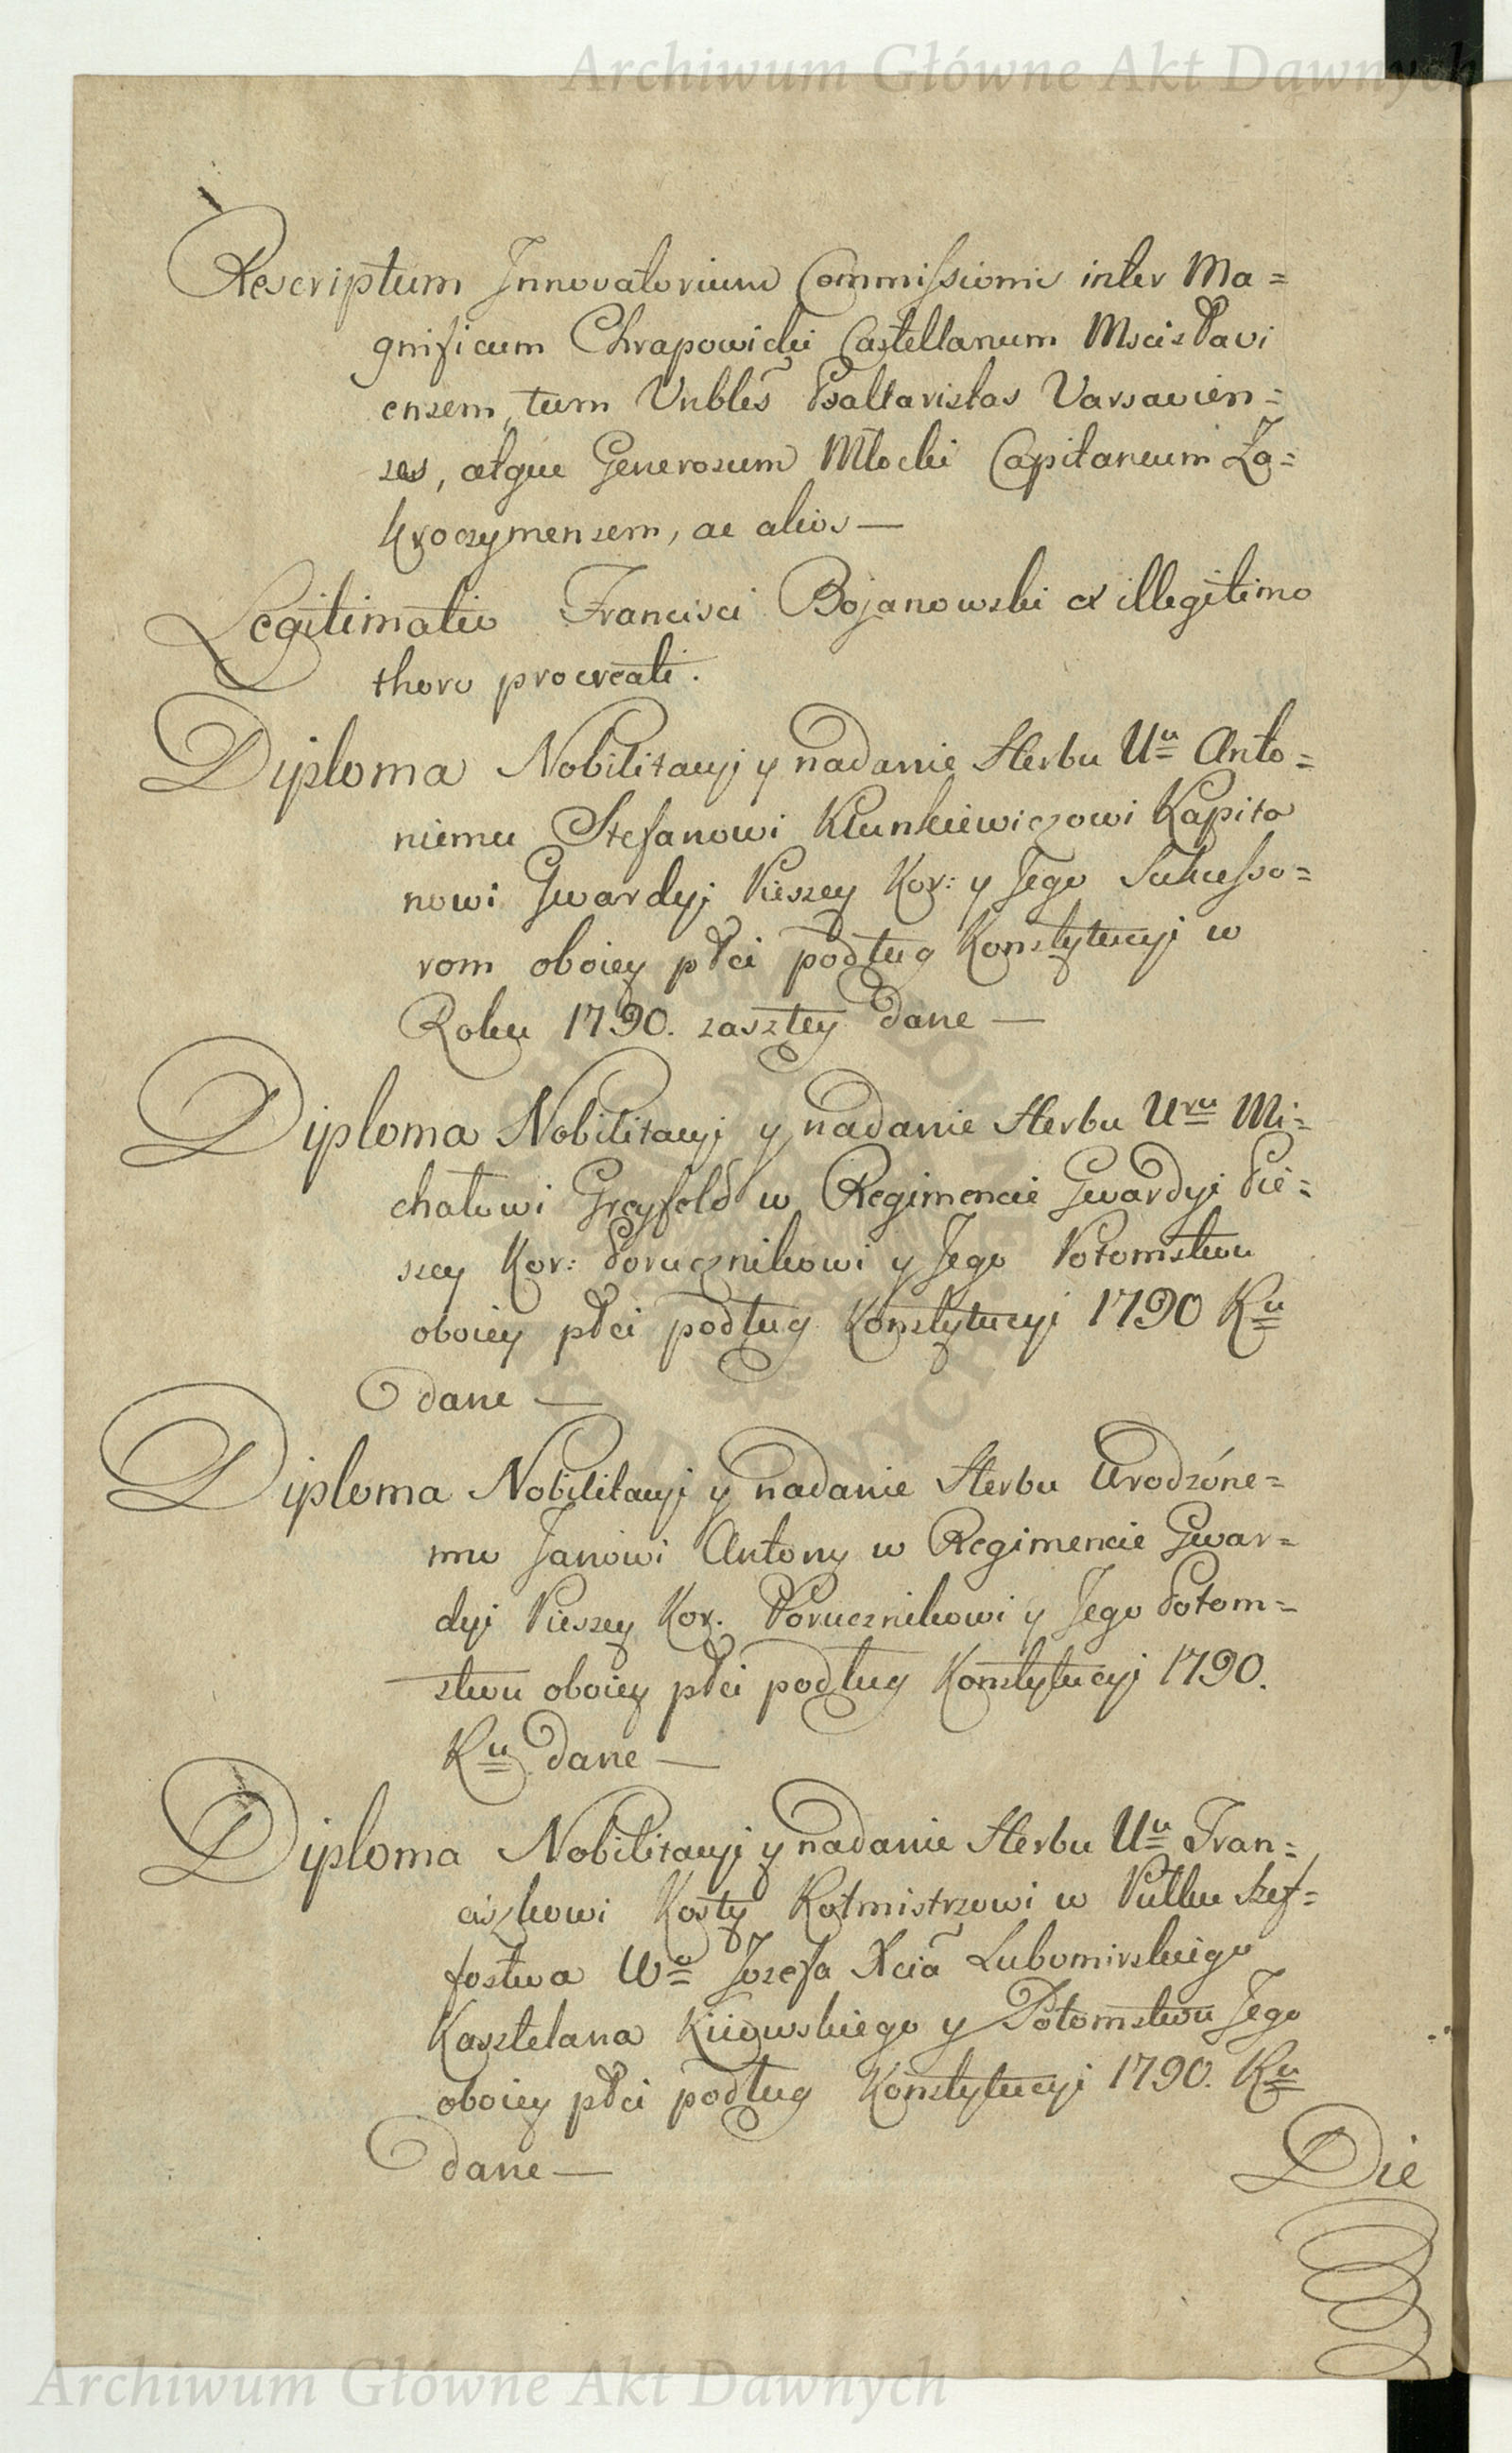 Archiwum Główne Akt Dawnych
Rescriptum Innovatorium Commissionis inter Ma=
gnificum Chrapowicki Castellanum Mscisłavi
ensem, tum Vnbles Psaltaristas Varsavien=
ses, atque Generosum Młocki Capitaneum Za=
kroczymensem, ac alios —
Legitimatio Francisci Bojanowski ex illegitimo
thoro procreati.
Diploma Nobilitacyi y nadanie Herbu Uu Anto=
niemu Stefanowi Klunkiewiczowi Kapita
nowi Gwardyj Pieszey Kor: y Jego Sukcesso=
rom oboiey płci podług Konstytucyi w
Roku 1790. zaszłey dane —
Diploma Nobilitacyi y nadanie Herbu Uru Mi=
chałowi Greyfeld w Regimencie Gwardyi Pie=
szey Kor: Porucznikowi y Jego Potomstwu
oboiey płci podług Konstytucyi 1790 Ku
dane —
Diploma Nobilitacyi y nadanie Herbu Urodzóne=
mu Janowi Antony w Regimencie Gwar=
dyi Pieszey Kor. Porucznikowi y Jego Potom=
stwu oboiey płci podług Konstytucyj 1790.
Ru dane —
Diploma Nobilitacyi y nadanie Herbu Uu Fran=
ciszkowi Kosty Rotmistrzowi w Pułku Szef=
fostwa Wo Jozefa Xcia Lubomirskiego
Kasztelana Kiiowskiego y Potomstwu Jego
oboiey płci podług Konstytucyi 1790. Ru
dane —
Die
Archiwum Główne Akt Dawnych